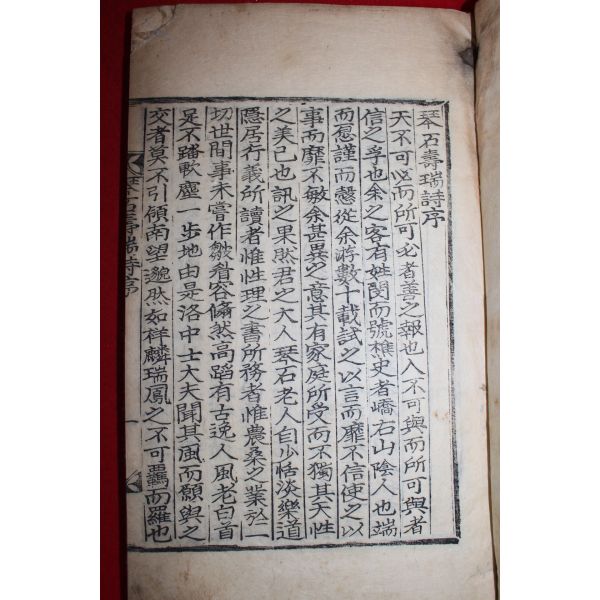 琴石壽瑞詩序
天不可必而所可必者善之報也人不可與而所可與者
信之孚也余之客有姓閔而號樵史者嶠右山陰人也端
而慤謹而慇從余游數十載試之以言而靡不信使之以
事而靡不敏余甚異之意其有家庭所受而不獨其天性
之美已也訊之果然君之大人琴石老人自少恬淡樂道
隱居行義所讀者惟性理之書所務者惟農桑之業於一
切世間事未嘗作皺眉容翛然高蹈有古逸人風老白首
足不踏軟塵一步地由是洛中士大夫聞其風而願與之
交者莫不引領南望邈然如祥麟瑞鳳之不可羈而羅也
琴石壽瑞詩序
一